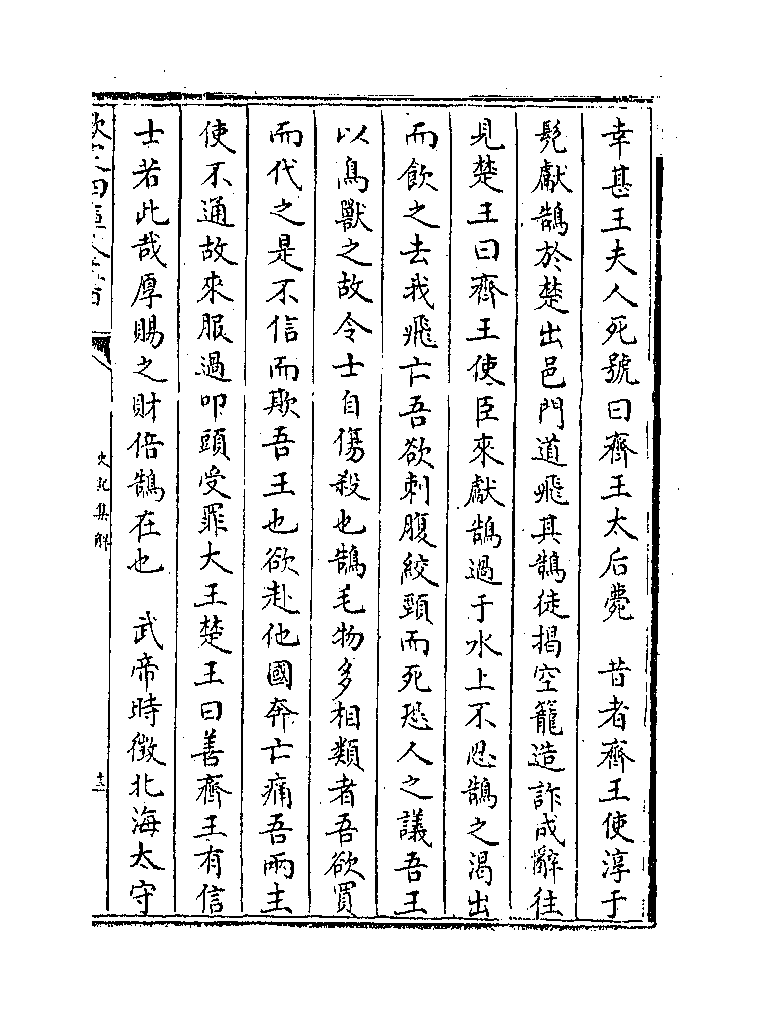 幸甚王夫人死號曰齊王太后薨　昔者齊王使淳于
髡獻鵠於楚出邑門道飛其鵠徒揭空籠造詐成辭往
見楚王曰齊王使臣來獻鵠過于水上不忍鵠之渴出
而飲之去我飛亡吾欲刺腹絞頸而死恐人之議吾王
以鳥獸之故令士自傷殺也鵠毛物多相類者吾欲買
而代之是不信而欺吾王也欲赴他國奔亡痛吾兩主
使不通故來服過叩頭受罪大王楚王曰善齊王有信
士若此哉厚賜之財倍鵠在也　武帝時徵北海太守
史記集解
十三